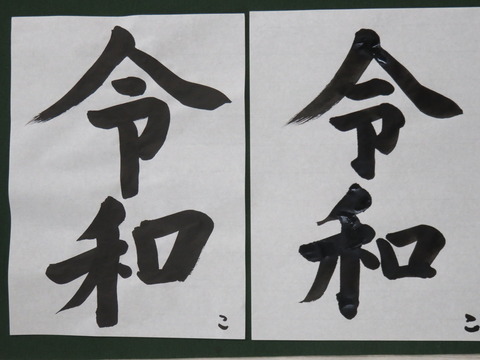 令和
こ
令和
こ